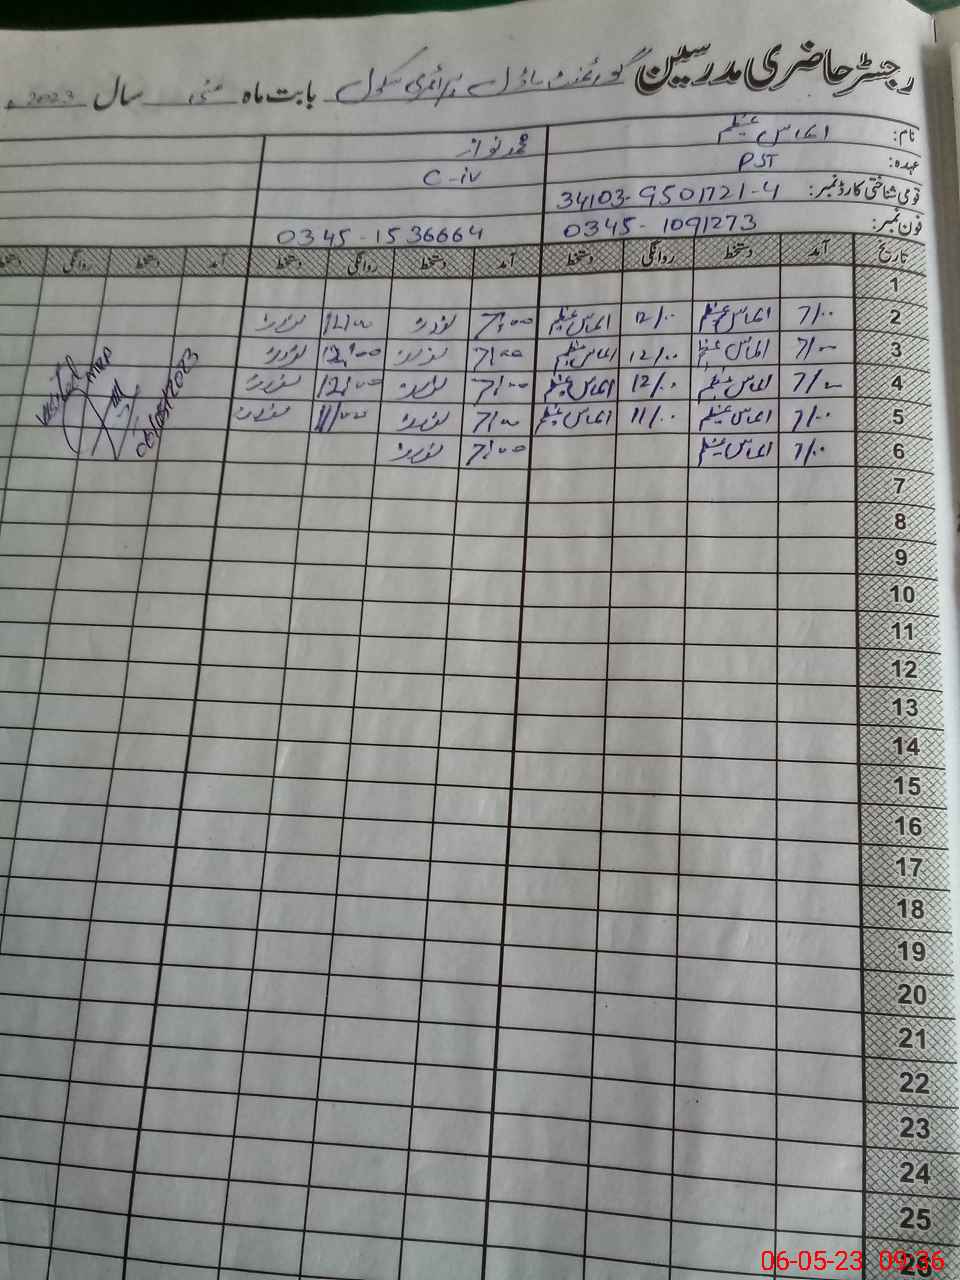 رجسٹر حاضری مدرسین گورنمنٹ ماڈل پرائمری سکول بابت ماہ مئی سال 2023ء
نام: الماس عظیم محمد نواز
عہدہ: PST C-iv
قومی شناختی کارڈ نمبر: 34103-9501721-4
فون نمبر: 0345-1091273 0345-1536664
تاریخ آمد دستخط روانگی دستخط آمد دستخط روانگی دستخط آمد دستخط روانگی دستخط
1
2 7/00 الماس عظیم 12/00 الماس عظیم 7/00 نواز 12/00 نواز
3 7/00 الماس عظیم 12/00 الماس عظیم 7/00 نواز 12/00 نواز
4 7/00 الماس عظیم 12/00 الماس عظیم 7/00 نواز 12/00 نواز
5 7/00 الماس عظیم 11/00 الماس عظیم 7/00 نواز 11/00 نواز
6 7/00 الماس عظیم 7/00 نواز
Visited
06/05/2023
7
8
9
10
11
12
13
14
15
16
17
18
19
20
21
22
23
24
25
26
06-05-23 09:36